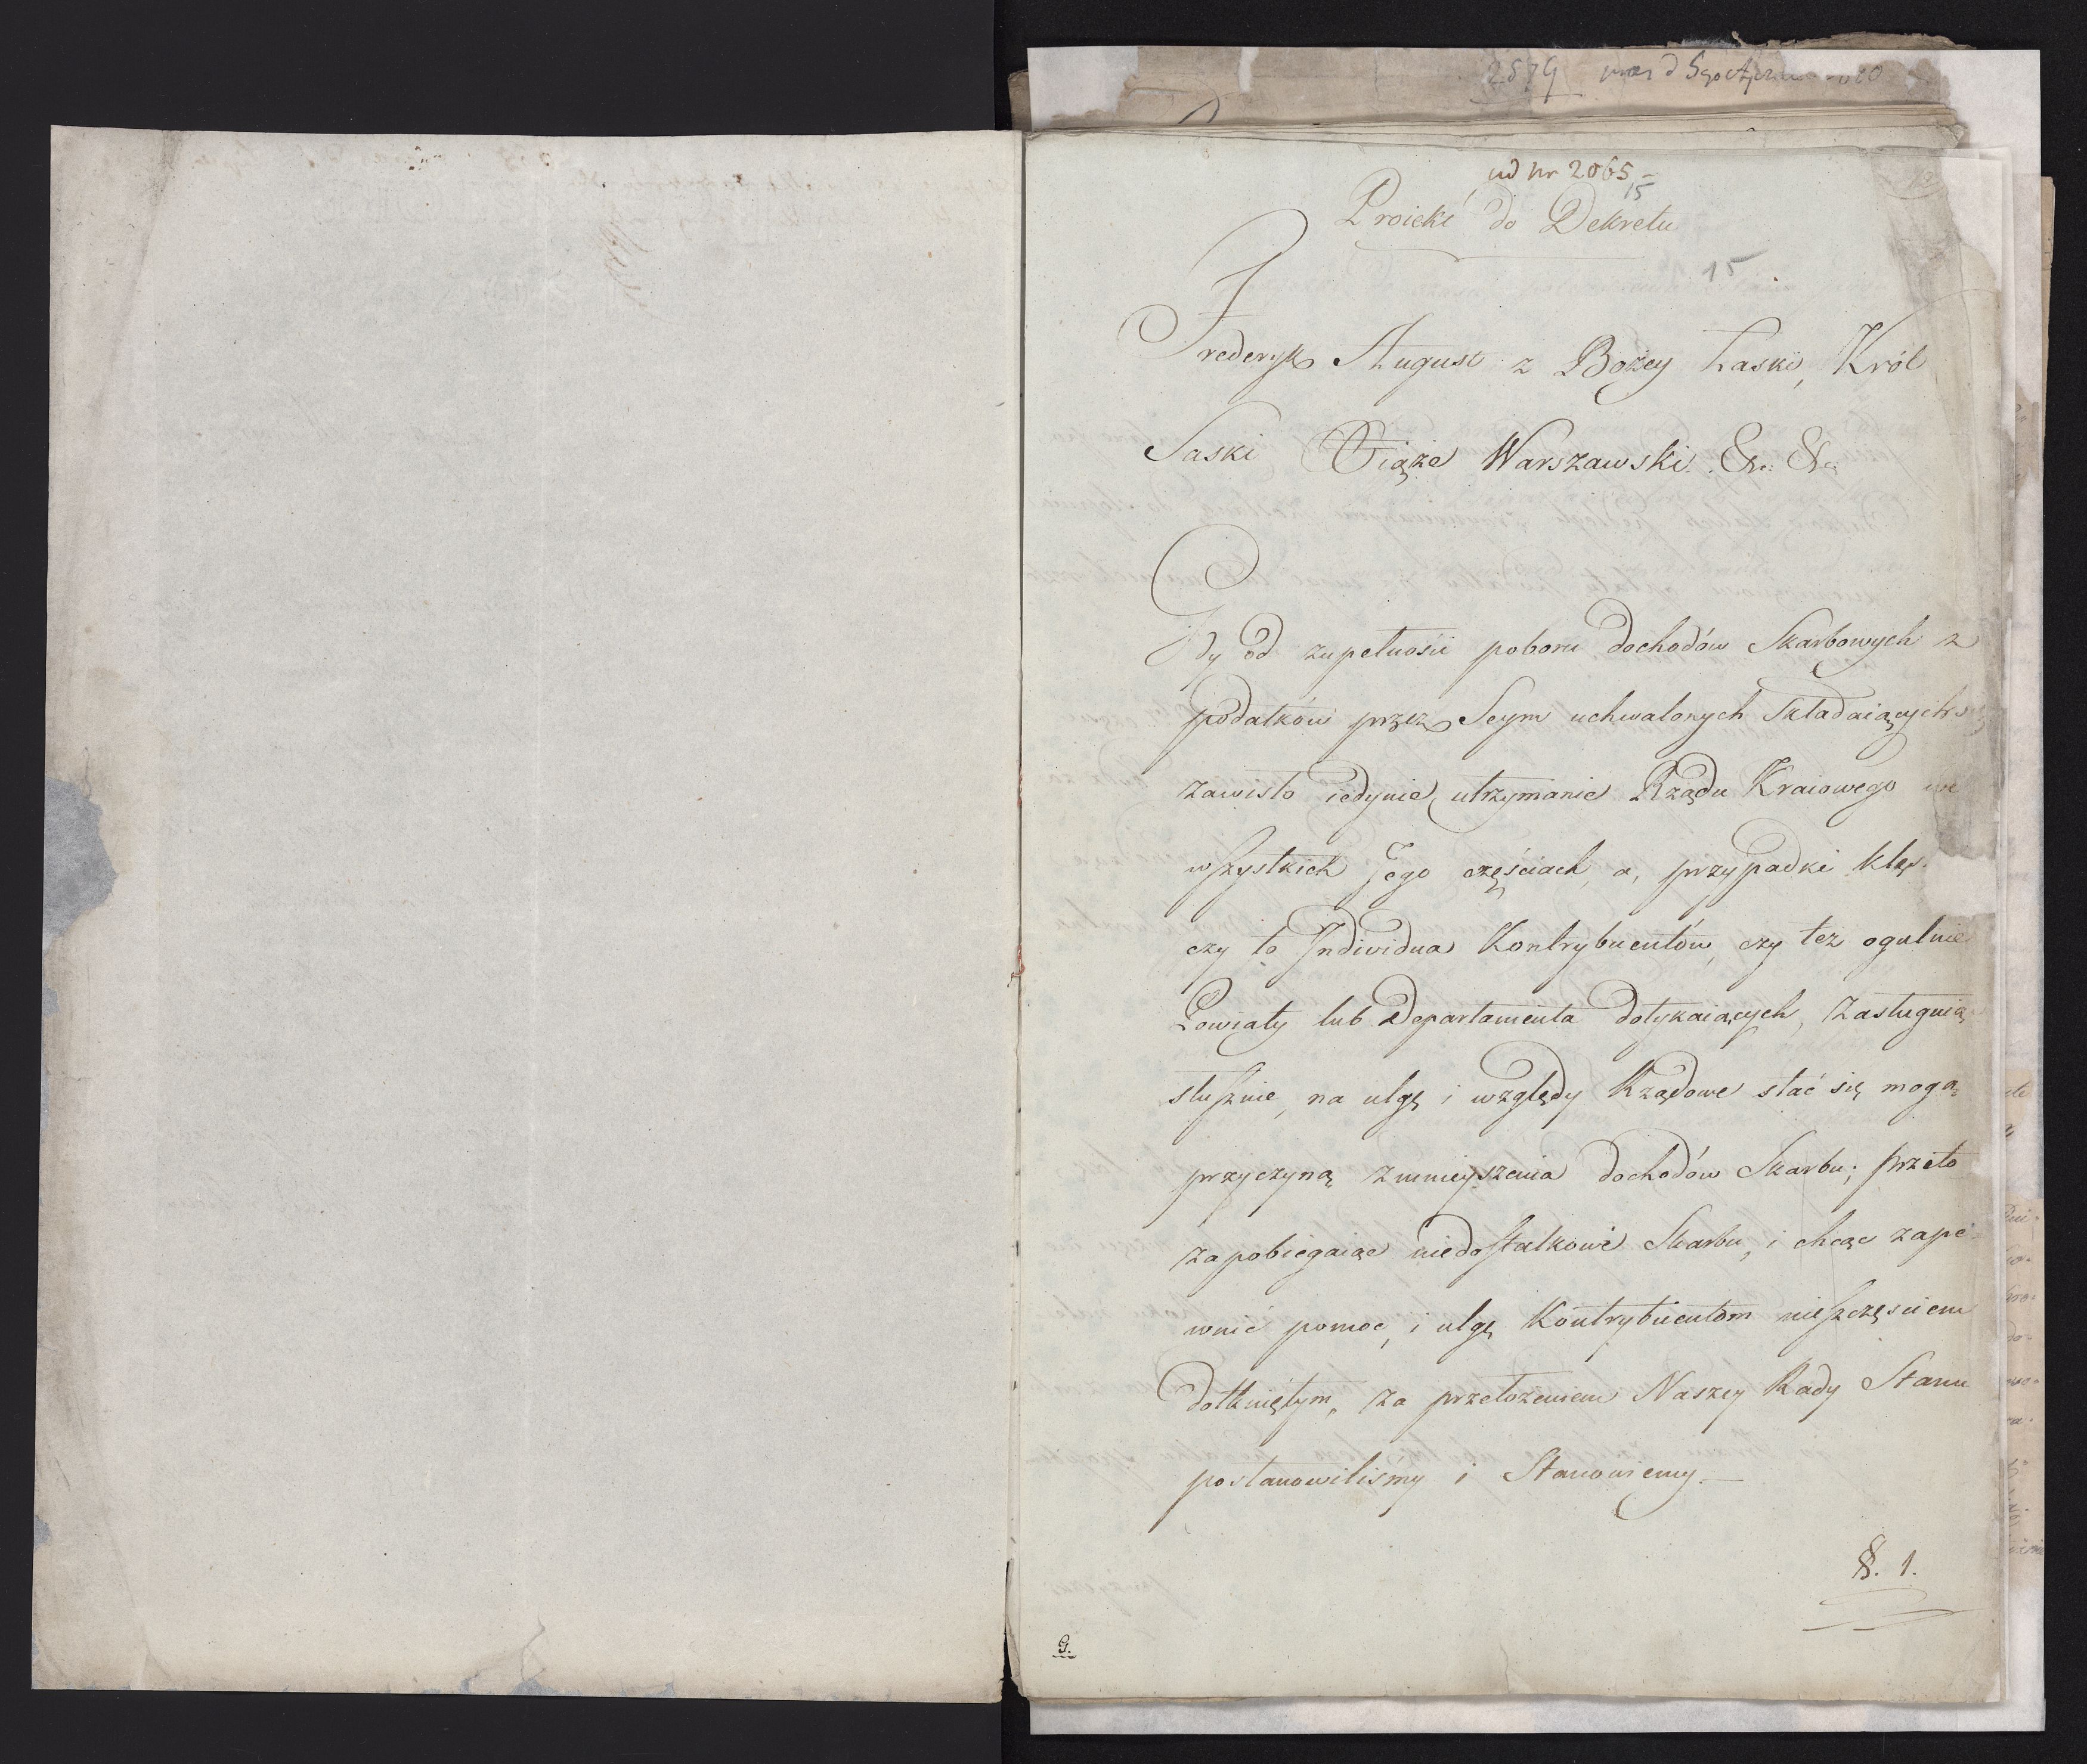 2579
ad Nr 2065
15
Proiekt do Dekretu
15
Frederyk August z Bożey Łaski, Król
Saski Xiąże Warszawski &c. &c.
Gdy od zupełności poboru dochodów Skarbowych z
podatków przez Seym uchwalonych składaiących
zawisło iedynie utrzymanie Rządu Kraiowego we
wszystkich Jego częściach, a, przypadki klęs
czy to Individua Kontrybuentów, czy też ogulnie
Powiaty lub Departamenta dotykaiących, zasługuią
słusznie, na ulgę i względy Rządowe stać się mogą
przyczyną zmnieyszenia dochodów Skarbu; przeto
zapobiegaiąc niedostatkowi Skarbu, i chcąc zape-
wnić pomoc, i ulgę Kontrybuentom nieszczęściem
dotkniętym, za przełożeniem Naszey Rady Stanu
postanowiliśmy i Stanowiemy.—
§. 1.
G.